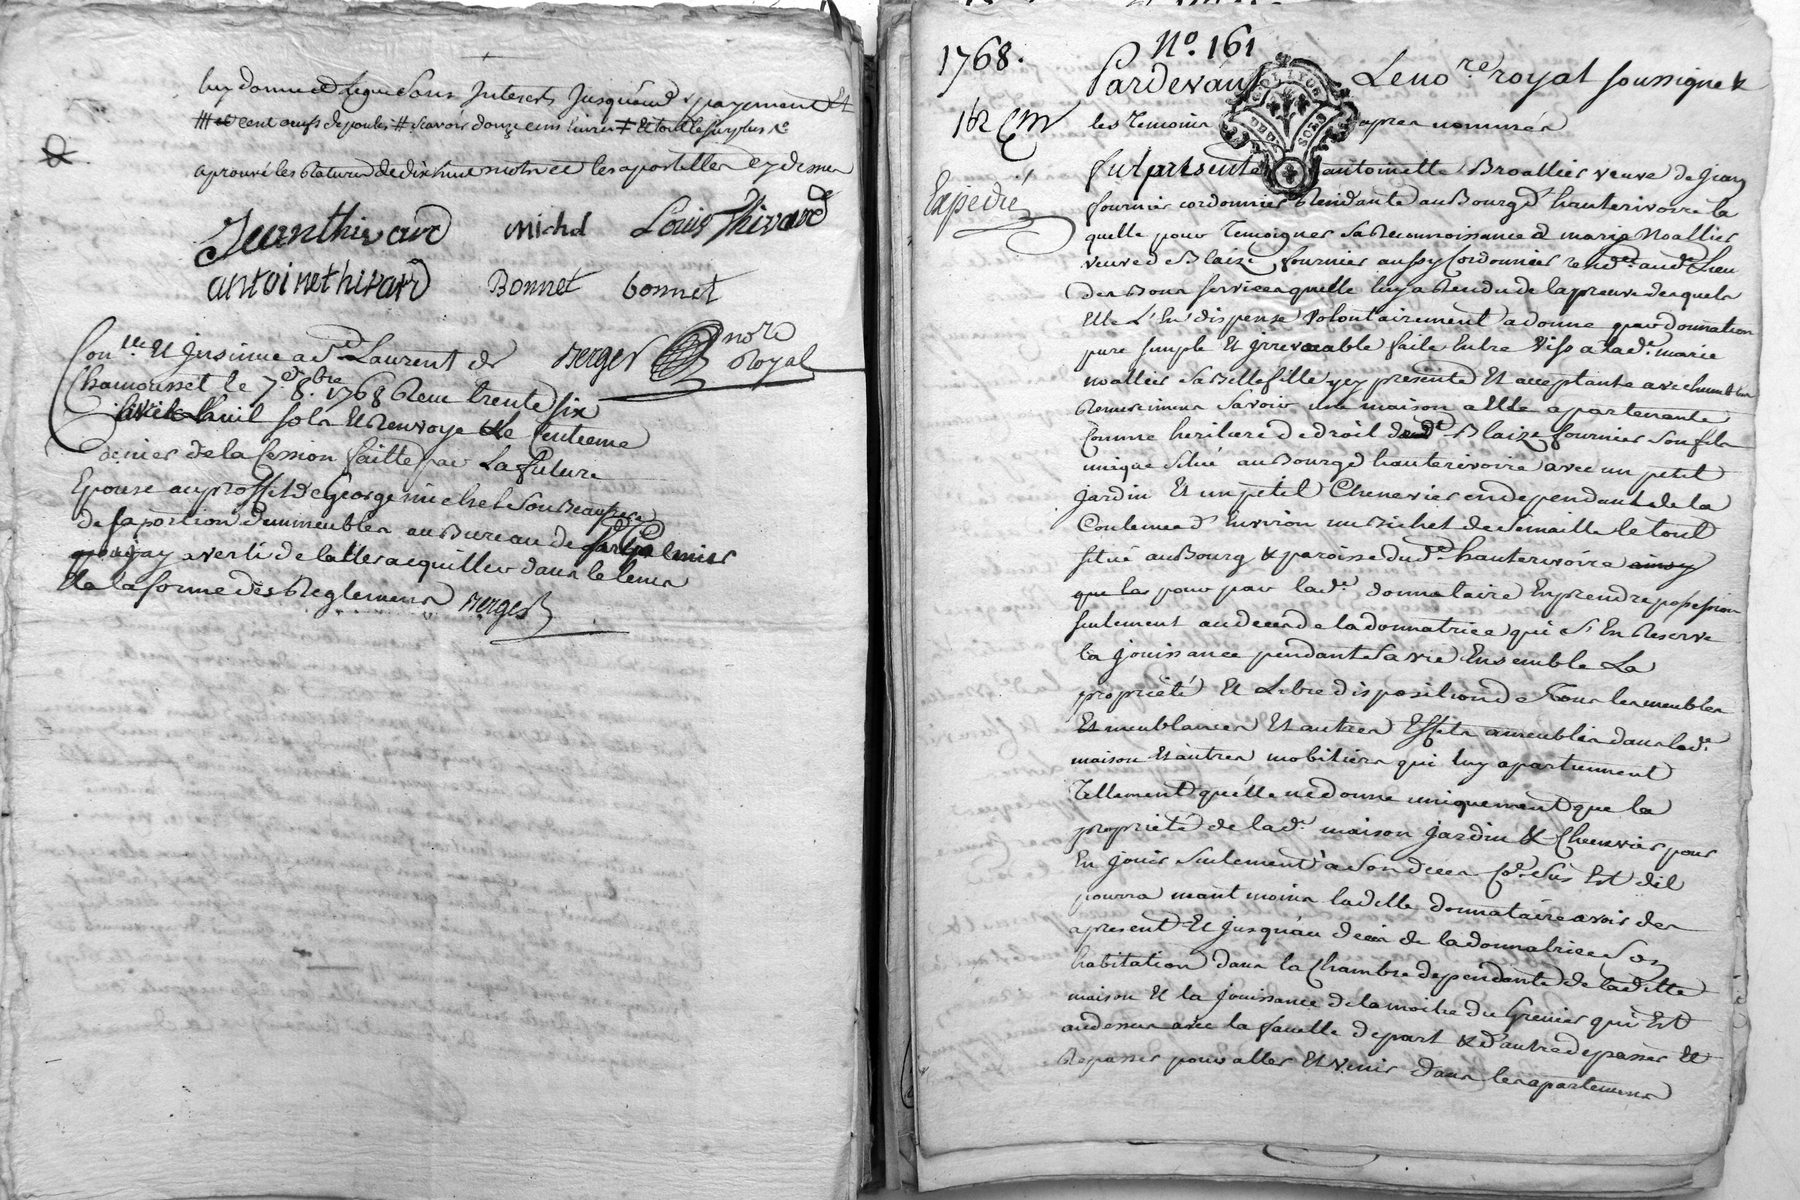 luy donne et legue sans Interests Jusquaud. payement Et
cent oeufs de poules # scavoir douze cens livres # et tout le surplus
aprouvé les Ratures de dix huit mots et les apostilles cy dessus
Jean thivard michel Louis Thivard
antoine thivard Bonnet bonnet
Berger nore Royal
Conlle Et Jnsinue a St Laurent de
Chamousset le 7e 8bre 1768 Reçu trente six
livres huit sols Et Renvoyé le Centieme
denier de la Cession faitte par La future
Epouse au proffit de George michel son Beaupere
de sa portion d'immeubles au Bureau de
jay averti de latter acquitter dans le tems
Et a la forme des Reglemens Berger
1768. No. 161
Pardevant Le nore royal soussigné &
162
les Temoins apres nommés
GEN. DE LYON
DEUX SOLS
Expedié
fut presente antoinette Broallier veuve de Jean
fournier cordonnier Residante au Bourg d'hauterivoire la
quelle pour Temoigner sa Reconnoissance a marie Noallier
veuve de Blaize fournier aussy Cordonnier resid.te aud. Lieu
des Bons services quelle luy a Rendu de la preuve desquels
Elle L'En dispense Volontairement a donne par donnation
pure simple Et irrevocable faite Entre Vifs a lad.e marie
noallier sa Bellefille icy presente Et acceptante avec humbles
Remerciemens Savoir une maison a Elle apartenante
Comme heritiere de droit dud.t Blaize fournier son fils
unique situé au Bourg d'hauterivoire avec un petit
Jardin Et un petit Chenevier en dependants de la
Contenue d'Environ un Bichet de semaille le tout
situé au Bourg & paroisse dud. hauterivoire ainsy
que las pour par lad.e donnataire En prendre possession
seulement au decés de la donnatrice qui s'En Reserve
la Jouissance pendant sa vie Ensemble La
propriété Et Libre disposition de Tous les meubles
Et meublances Et autres Effets ameublés dans lad.e
maison Et autres mobiliers qui luy apartiennent
Tellement quelle ne donne uniquement que la
proprieté de lad.e maison Jardin & Chenevier pour
En Jouir seulement a son decés Co.e sus Est dit
pourra neantmoins laditte donnataire avoir des
apresent Et Jusquau decés de la donnatrice son
habitation dans la Chambre dependante de laditte
maison Et la Jouissance de la moitie du Grenier qui Est
audessus avec la faculte de part & d'autre de passer Et
Repasser pour aller Et venir dans les apartemens